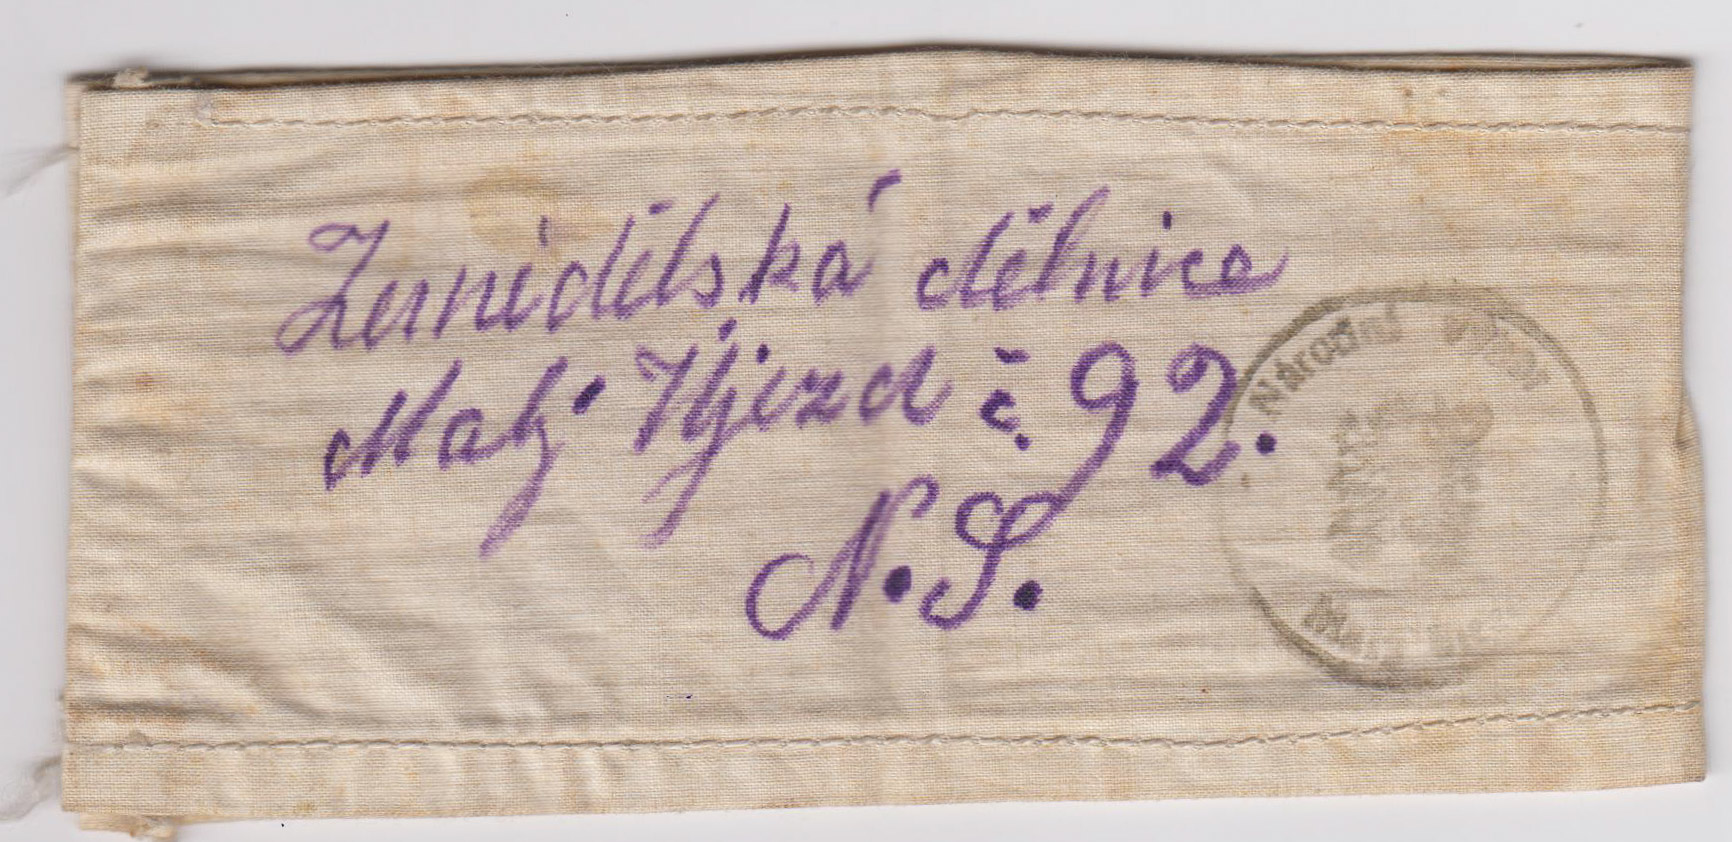 Zemědělská dělnice
Malý Újezd č. 92.
N. S.
Národní výbor